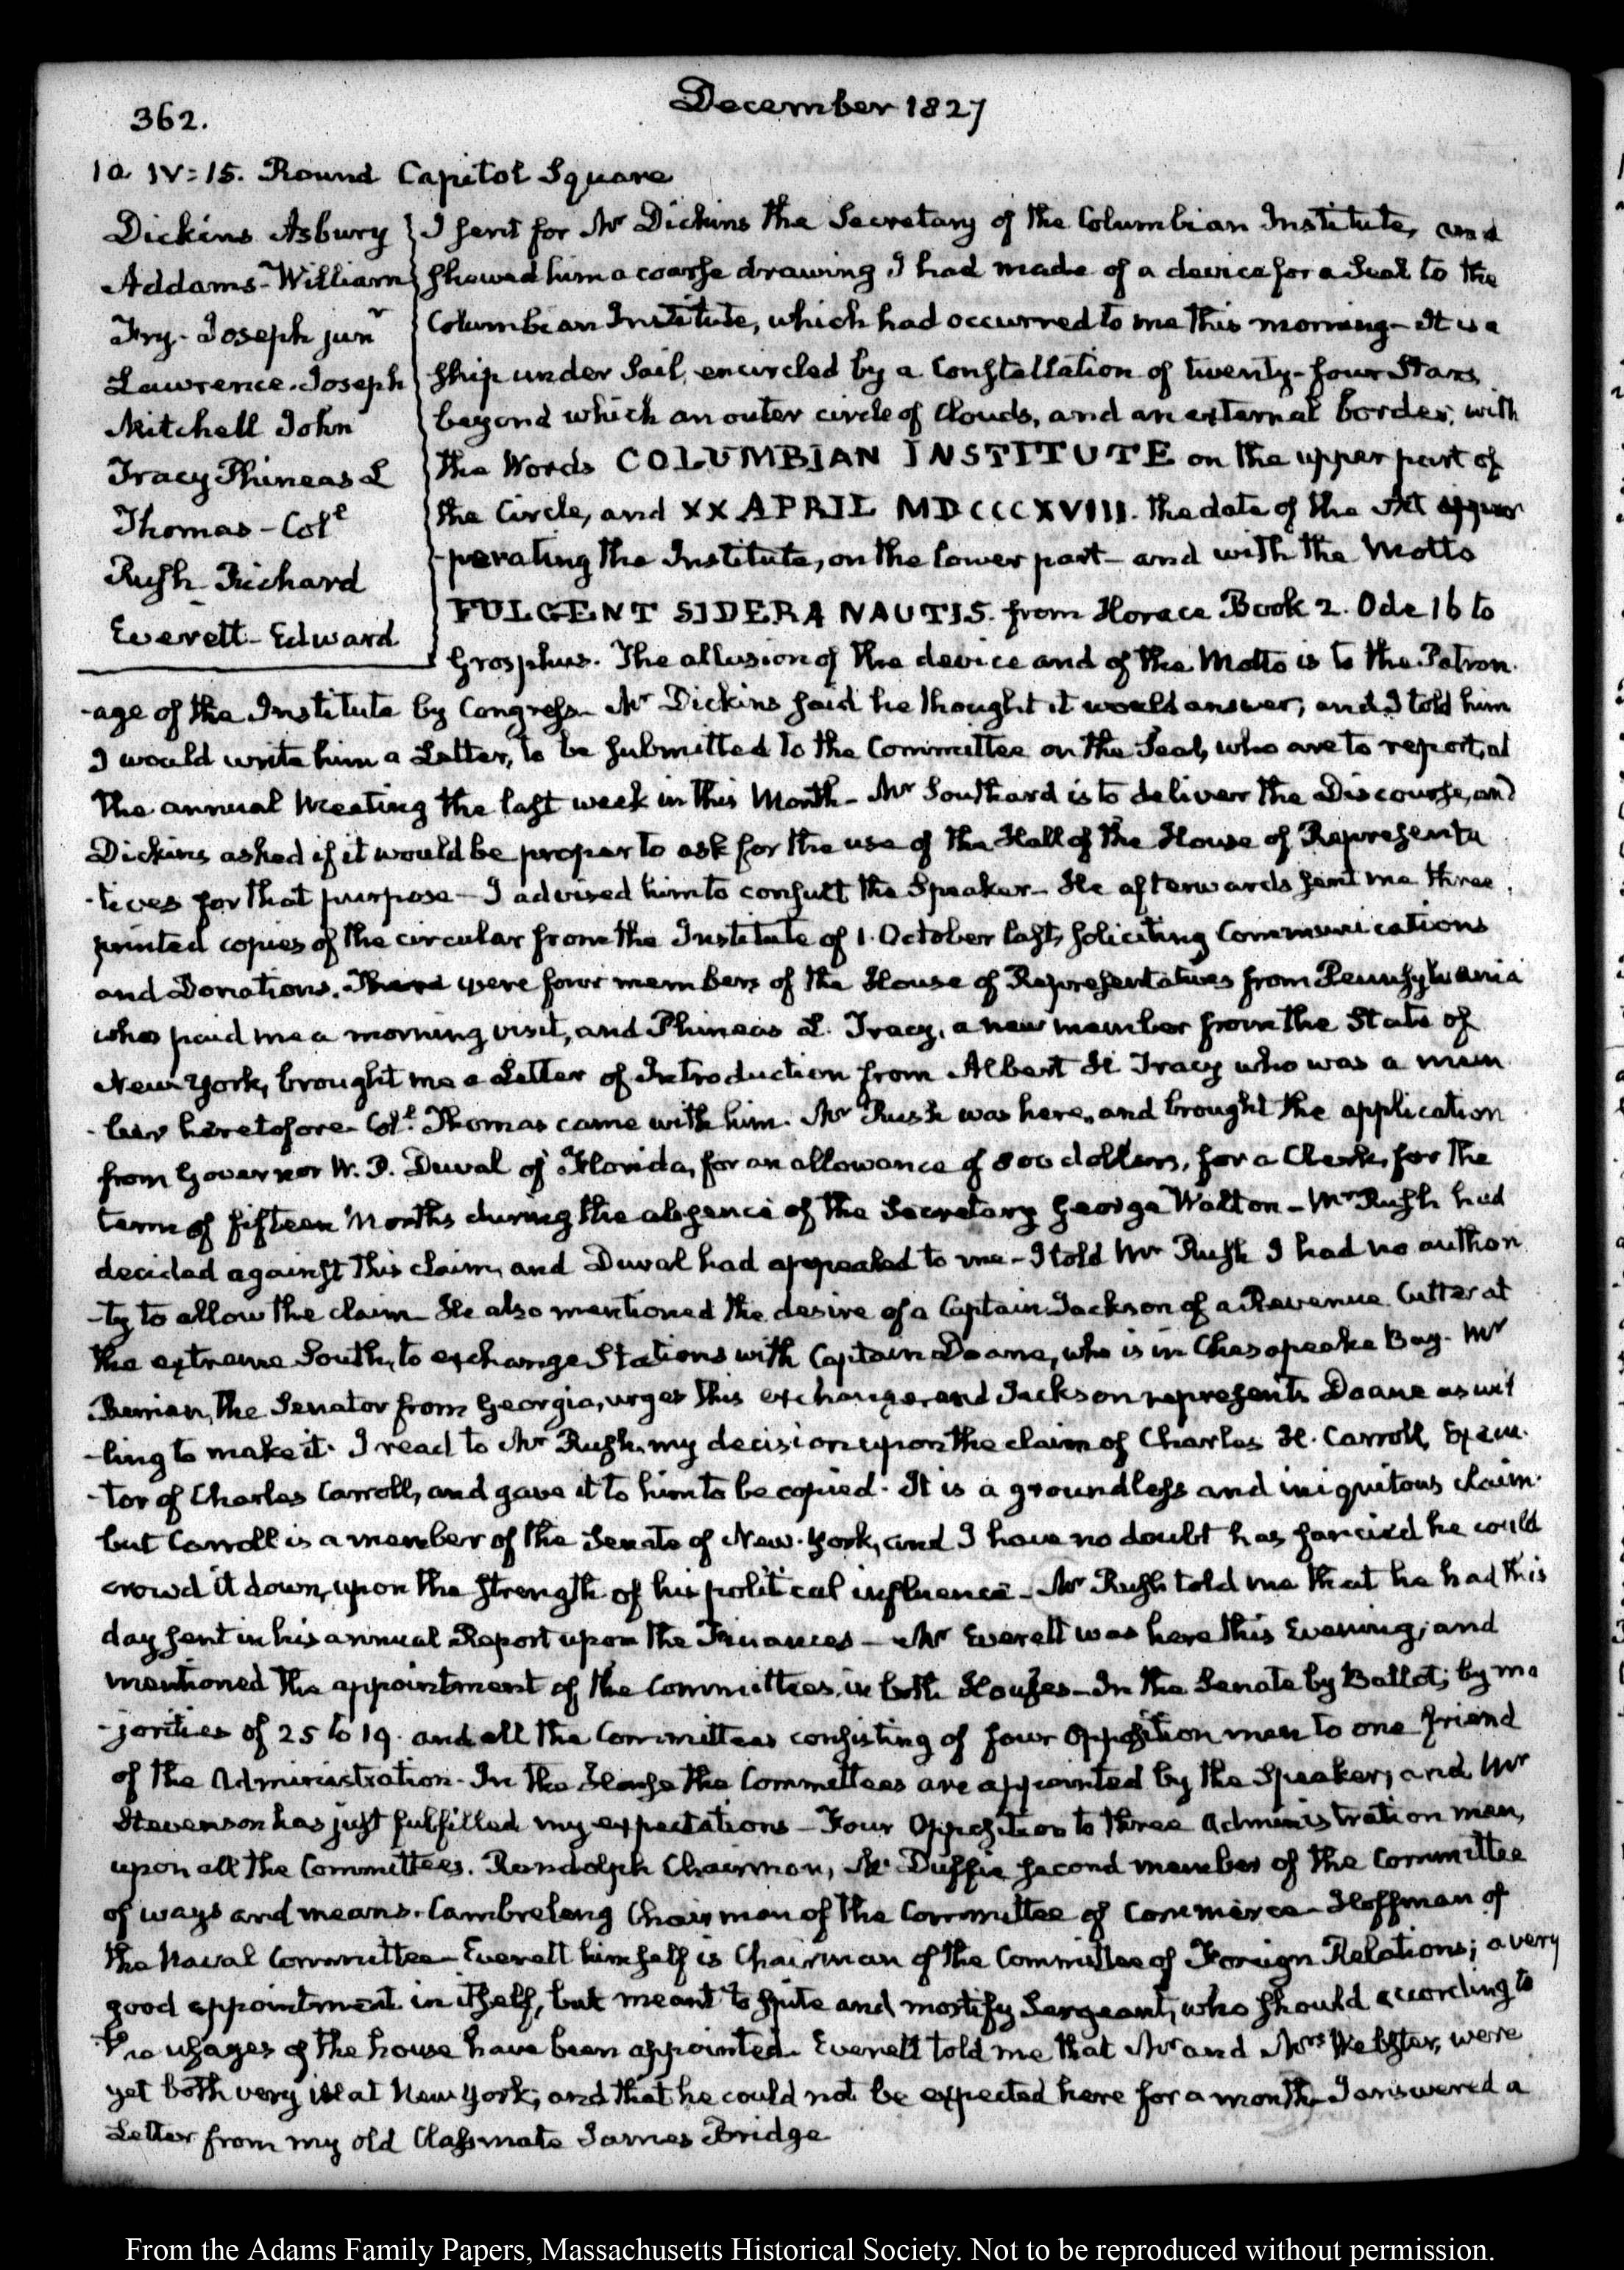 362.
December 1827
10 IV:15. Round Capitol Square
Dickins Asbury
Addams-William
Fry-Joseph junr
Lawrence-Joseph
Mitchell John
Tracy Phineas L
Thomas-Cole
Rush Richard
Everett-Edward
I sent for Mr Dickins the Secretary of the Columbian Institute, and
shewed him a coarse drawing I had made of a device for a Seal to the
Columbian Institute, which had occurred to me this morning- It is a
ship under Sail, encircled by a Constellation of twenty-four Stars
beyond which an outer circle of Clouds, and an external border; with
the Words COLUMBIAN INSTITUTE on the upper part of
the Circle, and XX APRIL MDCCCXVIII. the date of the Act
-porating the Institute, on the lower part- and with the Motto
FULGENT SIDERA NAUTIS. from Horace Book 2. Ode 16 to
Grosphus. The allusion of the device and of the Motto is to the Patron-
-age of the Institute by Congress- Mr Dickins said he thought it would answer, and I told him
I would write him a Letter, to be submitted to the Committee on the Seal, who are to report, at
the annual Meeting the last week in this Month- Mr Southard is to deliver the Discourse, and
Dickins asked if it would be proper to ask for the use of the Hall of the House of Representa
-tives for that purpose- I advised him to consult the Speaker- He afterwards sent me three
printed copies of the circular from the Institute of 1. October last, soliciting Communications
and Donations. There were four members of the House of Representatives from Pennsylvania
who paid me a morning visit, and Phineas L. Tracy, a new member from the State of
New York, brought me a Letter of Introduction from Albert H Tracy who was a mem
-ber heretofore- Cole Thomas came with him. Mr Rush was here, and brought the application
from Governor W. P. Duval of Florida, for an allowance of 800 dollars, for a Clerk, for the
term of fifteen Months during the absence of the Secretary George Walton- Mr Rush had
decided against this claim, and Duval had appealed to me- I told Mr Rush I had no authori
-ty to allow the claim- He also mentioned the desire of a Captain Jackson of a Revenue Cutter at
the extreme South, to exchange Stations with Captain Doane, who is in Chesapeake Bay- Mr
Berrien, the Senator from Georgia, urges this exchange, and Jackson represents Doane as wil
-ling to make it. I read to Mr Rush, my decision upon the claim of Charles H. Carroll, Execu-
-tor of Charles Carroll, and gave it to him to be copied. It is a groundless and iniquitous claim
but Carroll is a member of the Senate of New-York, and I have no doubt has fancied he could
crowd it down, upon the strength of his political influence- Mr Rush told me that he had this
day sent in his annual Report upon the Finances- Mr Everett was here this Evening; and
mentioned the appointment of the Committees, in both Houses- In the Senate by Ballot; by ma
-jorities of 25 to 19. and all the Committees consisting of four Opposition men to one friend
of the Administration- In the House the Committees are appointed by the Speaker, and Mr
Stevenson has just fulfilled my expectations- Four Opposition to three Administration men,
upon all the Committees. Randolph Chairman, Mc Duffie second member of the Committee
of ways and means. Cambreleng Chairman of the Committee of Commerce- Hoffman of
the Naval Committee- Everett himself is Chairman of the Committee of Foreign Relations; a very
good appointment in itself, but meant to spite and mortify Sergeant, who should according to
the usages of the house have been appointed. Everett told me that Mr and Mrs Webster, were
yet both very ill at New York, and that he could not be expected here for a month- I answered a
Letter from my old Classmate James Bridge
From the Adams Family Papers, Massachusetts Historical Society. Not to be reproduced without permission.